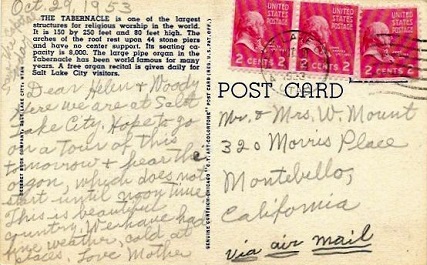 Oct. 29, 1953
THE TABERNACLE is one of the largest
structures for religious worship in the world.
It is 150 by 250 feet and 80 feet high. The
arches of the roof rest upon 44 stone piers
and have no center support. Its seating ca-
pacity is 8,000. The large pipe organ in the
Tabernacle has been world famous for many
years. A free organ recital is given daily for
Salt Lake City visitors.
Dear Helen & Woody
Here we are at Salt
Lake City. Hope to go
on a tour of this
tomorrow & hear the
organ, which does not
start until noon time.
This is beautiful
country. We have had
fine weather, cold at
places. Love Mother
DESERET BOOK COMPANY, SALT LAKE CITY, UTAH
GENUINE CURTEICH-CHICAGO "C.T. ART-COLORTONE" POST CARD (REG. U.S. PAT. OFF.)
2 CENTS 2
2 CENTS 2
2 CENTS 2
1953
POST CARD
Mr. & Mrs. W. Mount
320 Morris Place
Montebello,
California
Via air mail